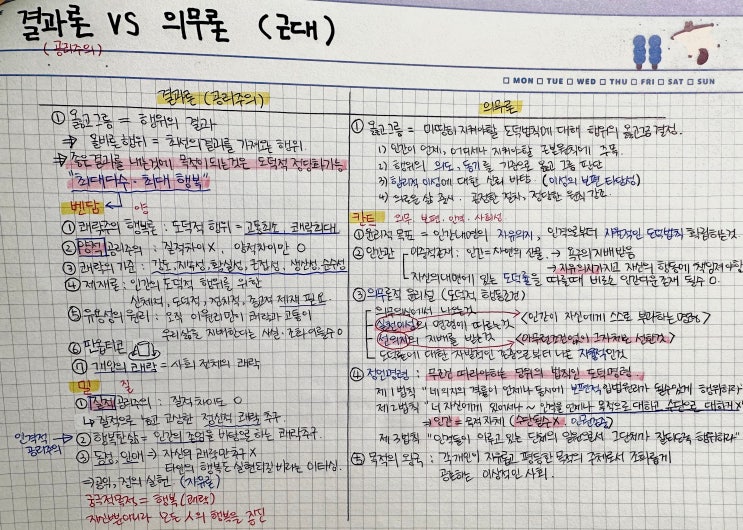 결과론 VS 의무론 (근대)
(공리주의)
□ MON □ TUE □ WED □ THU □ FRI □ SAT □ SUN
결과론 (공리주의)
① 옳고그름 = 행위의 결과
⇒ 올바른 행위 = 최선의 결과를 가져오는 행위.
⇒ 좋은 결과를 내는것에 목적이되는것은 도덕적 정당화가능
"최대다수·최대 행복"
벤담 양
① 쾌락주의 행복론 : 도덕적 행위 = 고통최소, 쾌락최대
② 양적 공리주의 : 질적차이 X, 양적차이만 O
③ 쾌락의 기준 : 강도, 지속성, 확실성, 근접성, 생산성, 순수성
④ 제재론 : 인간의 도덕적 행위를 위한
신체적, 도덕적, 정치적, 종교적 제재 필요.
⑤ 유용성의 원리 : 오직 이원리만이 쾌락과 고통이
우리삶을 지배한다는 사실. 조화 이룰수 O
⑥ 판옵티콘
⑦ 개인의 쾌락 = 사회 전체의 쾌락
밀 질
① 질적공리주의 : 질적차이도 O
질적으로 높고 고상한 정신적 쾌락 추구
인격적 공리주의
② 행복한삶 = 인간의 존엄을 바탕으로 하는 쾌락추구.
③ 동정, 인애 → 자신의 쾌락만 추구 X
타인의 행복도 실현되길 바라는 이타심.
⇒ 공익, 정의 실현 (자유론)
궁극적목적 = 행복 (쾌락)
자신뿐아니라 모든 人의 행복을 증진
의무론
① 옳고그름 = 마땅히 지켜야할 도덕법칙에 대해 행위의 옳고그름 결정.
1) 인간이 언제, 어디서나 지켜야할 근본원칙에 주목.
2) 행위의 의도, 동기를 기준으로 옳고 그름 판단
3) 합리적 이성에 대한 신뢰 바탕. (이성의 보편 타당성)
4) 의로운 삶 중시. 공정한 절차, 정당한 원칙 강조.
칸트 의무 보편, 인격
① 윤리적 목표 = 인간내면의 자유의지, 인격으로부터 자율적인 도덕법칙 확립하는것.
② 인간관 이중적존재 : 인간 = 자연의 산물. → 욕구의 지배받음
→ 자유의지가지고 자신의 행동에 책임져야함
자신의 내면에 있는 도덕률을 따를때 비로소 인간다운존재 될수 O.
③ 의무론적 윤리설 (도덕적 행동조건)
의무의식에서 나오는것
실천이성의 명령에 따르는것 <인간이 자신에게 스스로 부과하는 명령>
선의지의 지배를 받는것 <아무런 조건없이 그자체로 선한것>
도덕률에 대한 자발적인 존중으로부터 나온 자율적인것
④ 정언명령 : 무조건 따라야하는 당위의 법칙인 도덕명령.
제 1법칙 "네 의지의 격률이 언제나 동시에 보편적 입법원리가 될수있게 행위하라"
제 2법칙 "너 자신에게 있어서나 ~ 인격을 언제나 목적으로 대하고 수단으로 대하지 X"
⇒ 인간 = 목적 자체 (수단될수 X, 인권존중)
제 3법칙 "인격들이 이루고 있는 단체의 일원으로서 그단체가
⑤ 목적의 왕국 : 각 개인이 자유롭고 평등한 목적의 주체로서 조화롭게
공존하는 이상적인 사회.